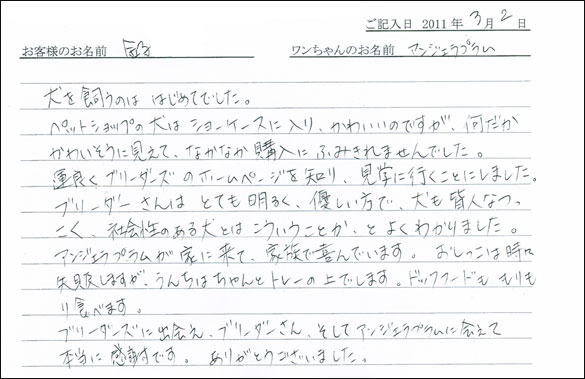 ご記入日 2011 年 3 月 2 日
お客様のお名前 ワンちゃんのお名前 アンジェラプラム
犬を飼うのは はじめてでした。
ペットショップの犬は ショーケースに入り、かわいいのですが、何だか
かわいそうに見えて、なかなか購入に ふみきれませんでした。
運良く ブリーダーズ のホームページを知り、見学に行くことにしました。
ブリーダーさんは とても明るく、優しい方で、犬も皆人なつ
こく、社会性のある犬とはこういうことか、と よくわかりました。
アンジェラプラムが家に来て、家族で喜んでいます。 おしっこは時々
失敗しますが、うんちはちゃんとトレーの上でします。ドックフードも もりも
り食べます。
ブリーダーズに出会え、ブリーダーさん、そしてアンジェラプラムに会えて
本当に 感謝です。 ありがとうございました。